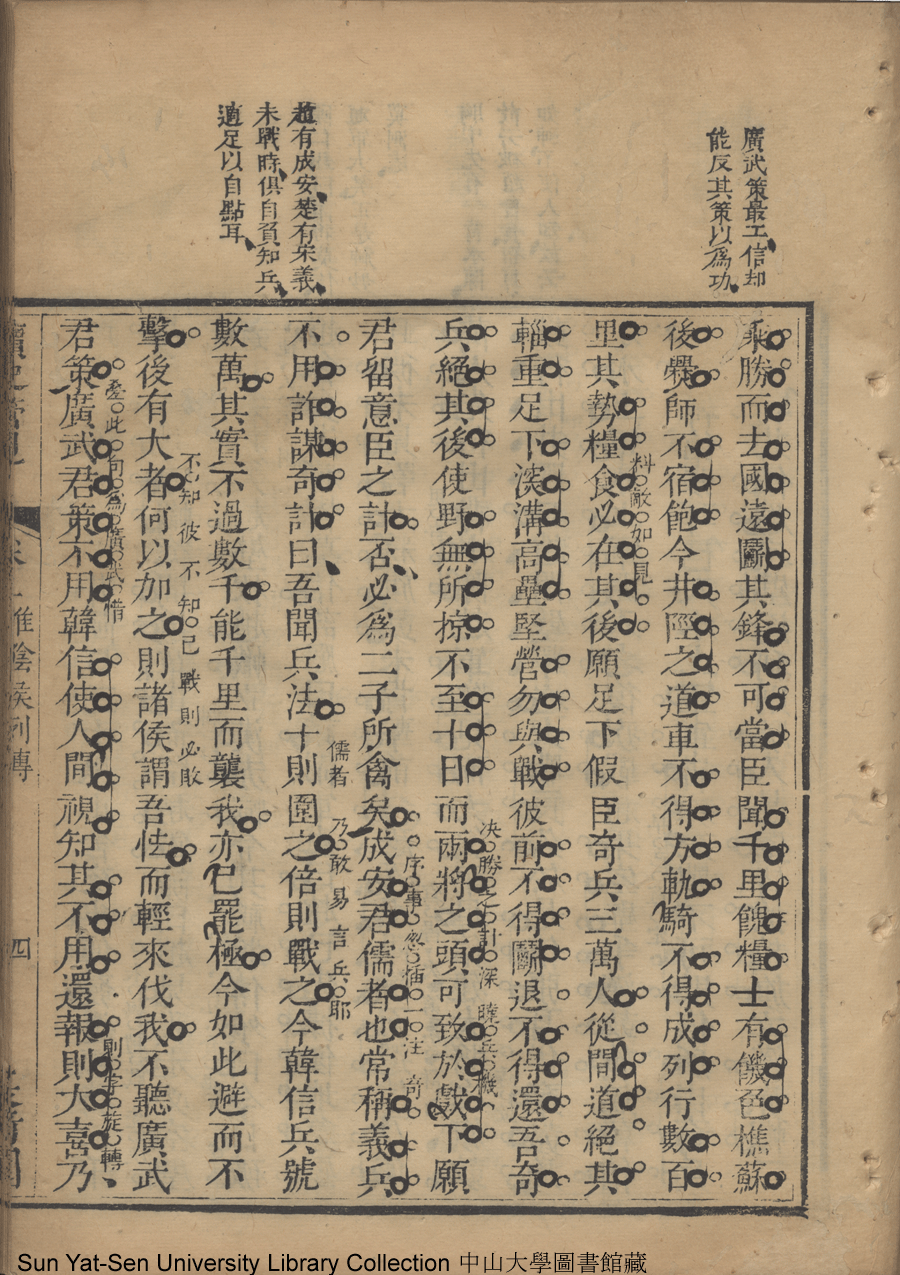 廣武策最工信却
能反其策以為功
趙有成安楚有宋義
未戰時俱自負知兵
適足以自點耳
乘勝而去國遠鬭其鋒不可當臣聞千里餽糧士有饑色樵蘇
後爨師不宿飽今井陘之道車不得方軌騎不得成列行數百
里其勢糧食必在其後願足下假臣奇兵三萬人從間道絕其
料敵如見
輜重足下深溝高壘堅營勿與戰彼前不得鬭退不得還吾奇
兵絕其後使野無所掠不至十日而兩將之頭可致於戲下願
決勝之計深曉兵機
君留意臣之計否必為二子所禽矣成安君儒者也常稱義兵
序事忽插一注奇
不用詐謀奇計曰吾聞兵法十則圍之倍則戰之今韓信兵號
儒者乃敢易言兵耶
數萬其實不過數千能千里而襲我亦已罷極今如此避而不
擊後有大者何以加之則諸侯謂吾怯而輕來伐我不聽廣武
不知彼不知己戰則必敗
君策廣武君策不用韓信使人間視知其不用還報則大喜乃
壘此句為廣武惜
則字旋轉
淮陰侯列傳
四
Sun Yat-Sen University Library Collection 中山大學圖書館藏